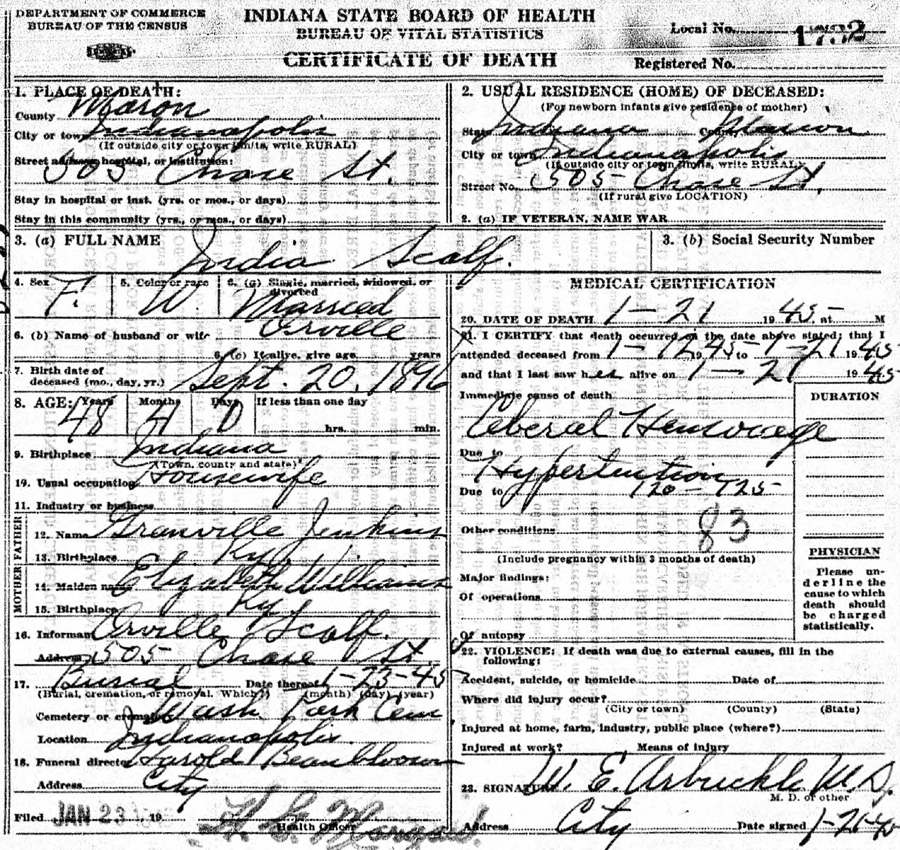 DEPARTMENT OF COMMERCE
BUREAU OF THE CENSUS
INDIANA STATE BOARD OF HEALTH
BUREAU OF VITAL STATISTICS
CERTIFICATE OF DEATH
Local No. 1732
Registered No.
1. PLACE OF DEATH:
County Marion
City or town Indianapolis
(If outside city or town limits, write RURAL)
Street address, hospital, or institution:
505 Chase St.
Stay in hospital or inst. (yrs., or mos., or days)
Stay in this community (yrs., or mos., or days)
2. USUAL RESIDENCE (HOME) OF DECEASED:
(For newborn infants give residence of mother)
State Indiana County Marion
City or town Indianapolis
(If outside city or town limits, write RURAL)
Street No. 505 Chase St.
(If rural give LOCATION)
2. (a) IF VETERAN, NAME WAR
3. (a) FULL NAME India Scalf.
3. (b) Social Security Number
4. Sex F.
5. Color or race W
6. (a) Single, married, widowed, or divorced
Married
6. (b) Name of husband or wife Orville
6. (c) If alive, give age years
7. Birth date of
deceased (mo., day, yr.) Sept. 20, 1896
8. AGE: Years 48 Months 4 Days 0 If less than one day
hrs. min.
9. Birthplace Indiana
(Town, county and state)
10. Usual occupation Housewife
11. Industry or business
FATHER
12. Name Granville Jenkins
13. Birthplace Ky
MOTHER
14. Maiden name Elizabeth Williams
15. Birthplace Ky
16. Informant Orville Scalf.
Address 505 Chase St
17. Burial Date thereof 1-23-45
(Burial, cremation, or removal. Which?) (month) (day) (year)
Cemetery or crematory Wash Park Cem
Location Indianapolis
18. Funeral director Harold
Address City
Filed JAN 23 19
Health Officer
MEDICAL CERTIFICATION
20. DATE OF DEATH 1-21 1945 at M
21. I CERTIFY that death occurred on the date above stated; that I
attended deceased from 1-12 1945 to 1-21 1945
and that I last saw her alive on 1-21 1945
Immediate cause of death
DURATION
Ceberal
Due to
Hypertention
Due to 120-725
83
Other conditions
(Include pregnancy within 3 months of death)
Major findings:
Of operations
Of autopsy
PHYSICIAN
Please un-
derline the
cause to which
death should
be charged
statistically.
22. VIOLENCE: If death was due to external causes, fill in the
following:
Accident, suicide, or homicide Date of
Where did injury occur?
(City or town) (County) (State)
Injured at home, farm, industry, public place (where?)
Injured at work? Means of injury
23. SIGNATURE W. E. Arbuckle M.D.
M. D. or other
Address City Date signed 1-21-45